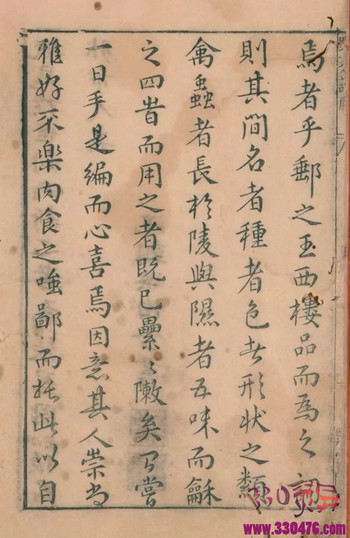 焉者乎鄭之王西樓品而為之詞
則其間名者種者色者形狀之類
禽蟲者長於陵與隰者五味而龢
之四旹而用之者既已纍〻臚矣乃嘗
一日手是編而心喜焉因意其人崇尚
雅好不樂肉食之嗤鄙而托此以自
330
www.330476.com